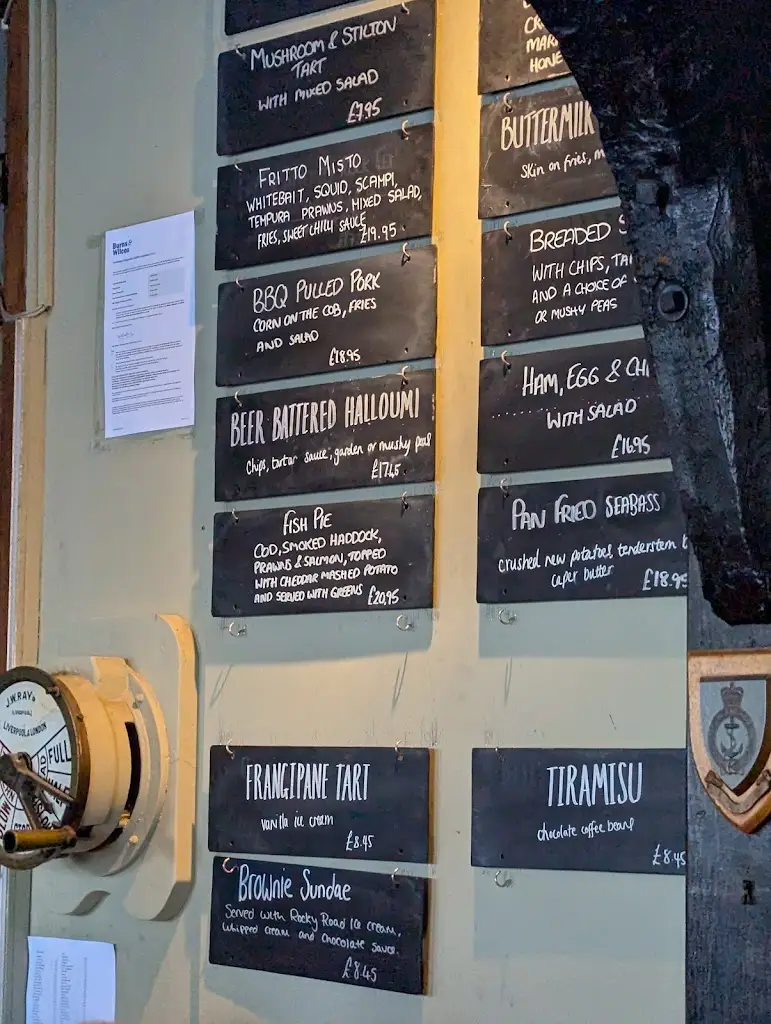 MUSHROOM & STILTON
TART
WITH MIXED SALAD
£7.95
FRITTO MISTO
WHITEBAIT, SQUID, SCAMPI,
TEMPURA PRAWNS, MIXED SALAD,
FRIES, SWEET CHILLI SAUCE
£19.95
BBQ PULLED PORK
CORN ON THE COB, FRIES
AND SALAD
£18.95
BEER BATTERED HALLOUMI
chips, tartar sauce, garden or mushy peas
£17.45
FISH PIE
COD, SMOKED HADDOCK,
PRAWNS & SALMON, TOPPED
WITH CHEDDAR MASHED POTATO
AND SERVED WITH GREENS £20.95
BUTTERMILK
Skin on fries,
BREADED
WITH CHIPS,
AND A CHOICE OF
OR MUSHY PEAS
HAM, EGG &
WITH SALAD
£16.95
PAN FRIED SEABASS
crushed new potatoes, tenderstem
caper butter
£18.95
FRANGIPANE TART
vanilla ice cream
£8.45
TIRAMISU
chocolate coffee beans
£8.45
Brownie Sundae
Served with Rocky Road Ice cream,
whipped cream and chocolate sauce.
£8.45
Burns &
Wilcox
J.W. RAY &
LIVERPOOL & LONDON
FULL
HALF